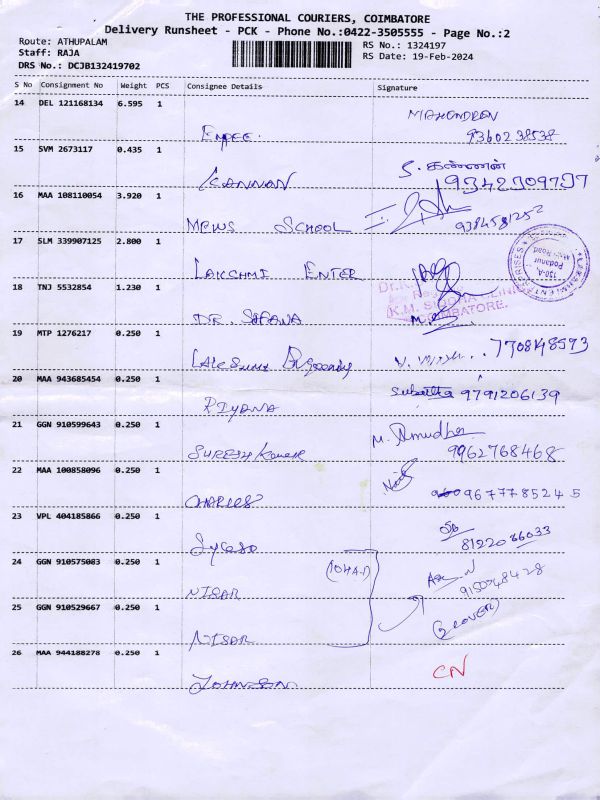 THE PROFESSIONAL COURIERS, COIMBATORE
Delivery Runsheet - PCK - Phone No.:0422-3505555 - Page No.:2
Route: ATHUPALAM
Staff: RAJA
DRS No.: DCJB132419702
RS No.: 1324197
RS Date: 19-Feb-2024
S No Consignment No Weight PCS Consignee Details Signature
14 DEL 121168134 6.595 1
MAHENDRAN
9360238538
15 SVM 2673117 0.435 1
KANNAN
S. கண்ணன்
9342309737
16 MAA 108110054 3.920 1
MEWS SCHOOL
9384581252
17 SLM 339907125 2.800 1
LAKSHMI ENTER
18 TNJ 5532854 1.230 1
K.M. CLINIC
COIMBATORE.
DR.
19 MTP 1276217 0.250 1
20 MAA 943685454 0.250 1
RIYANA
9791206139
21 GGN 910599643 0.250 1
SURESH Kumar
M. Amudha
9962768468
22 MAA 100858096 0.250 1
CHARLES
9677785245
23 VPL 404185866 0.250 1
8122036033
24 GGN 910575083 0.250 1
NISAR
9150048428
25 GGN 910529667 0.250 1
NISAR
(2 COVER)
26 MAA 944188278 0.250 1
JOHNSON
CN